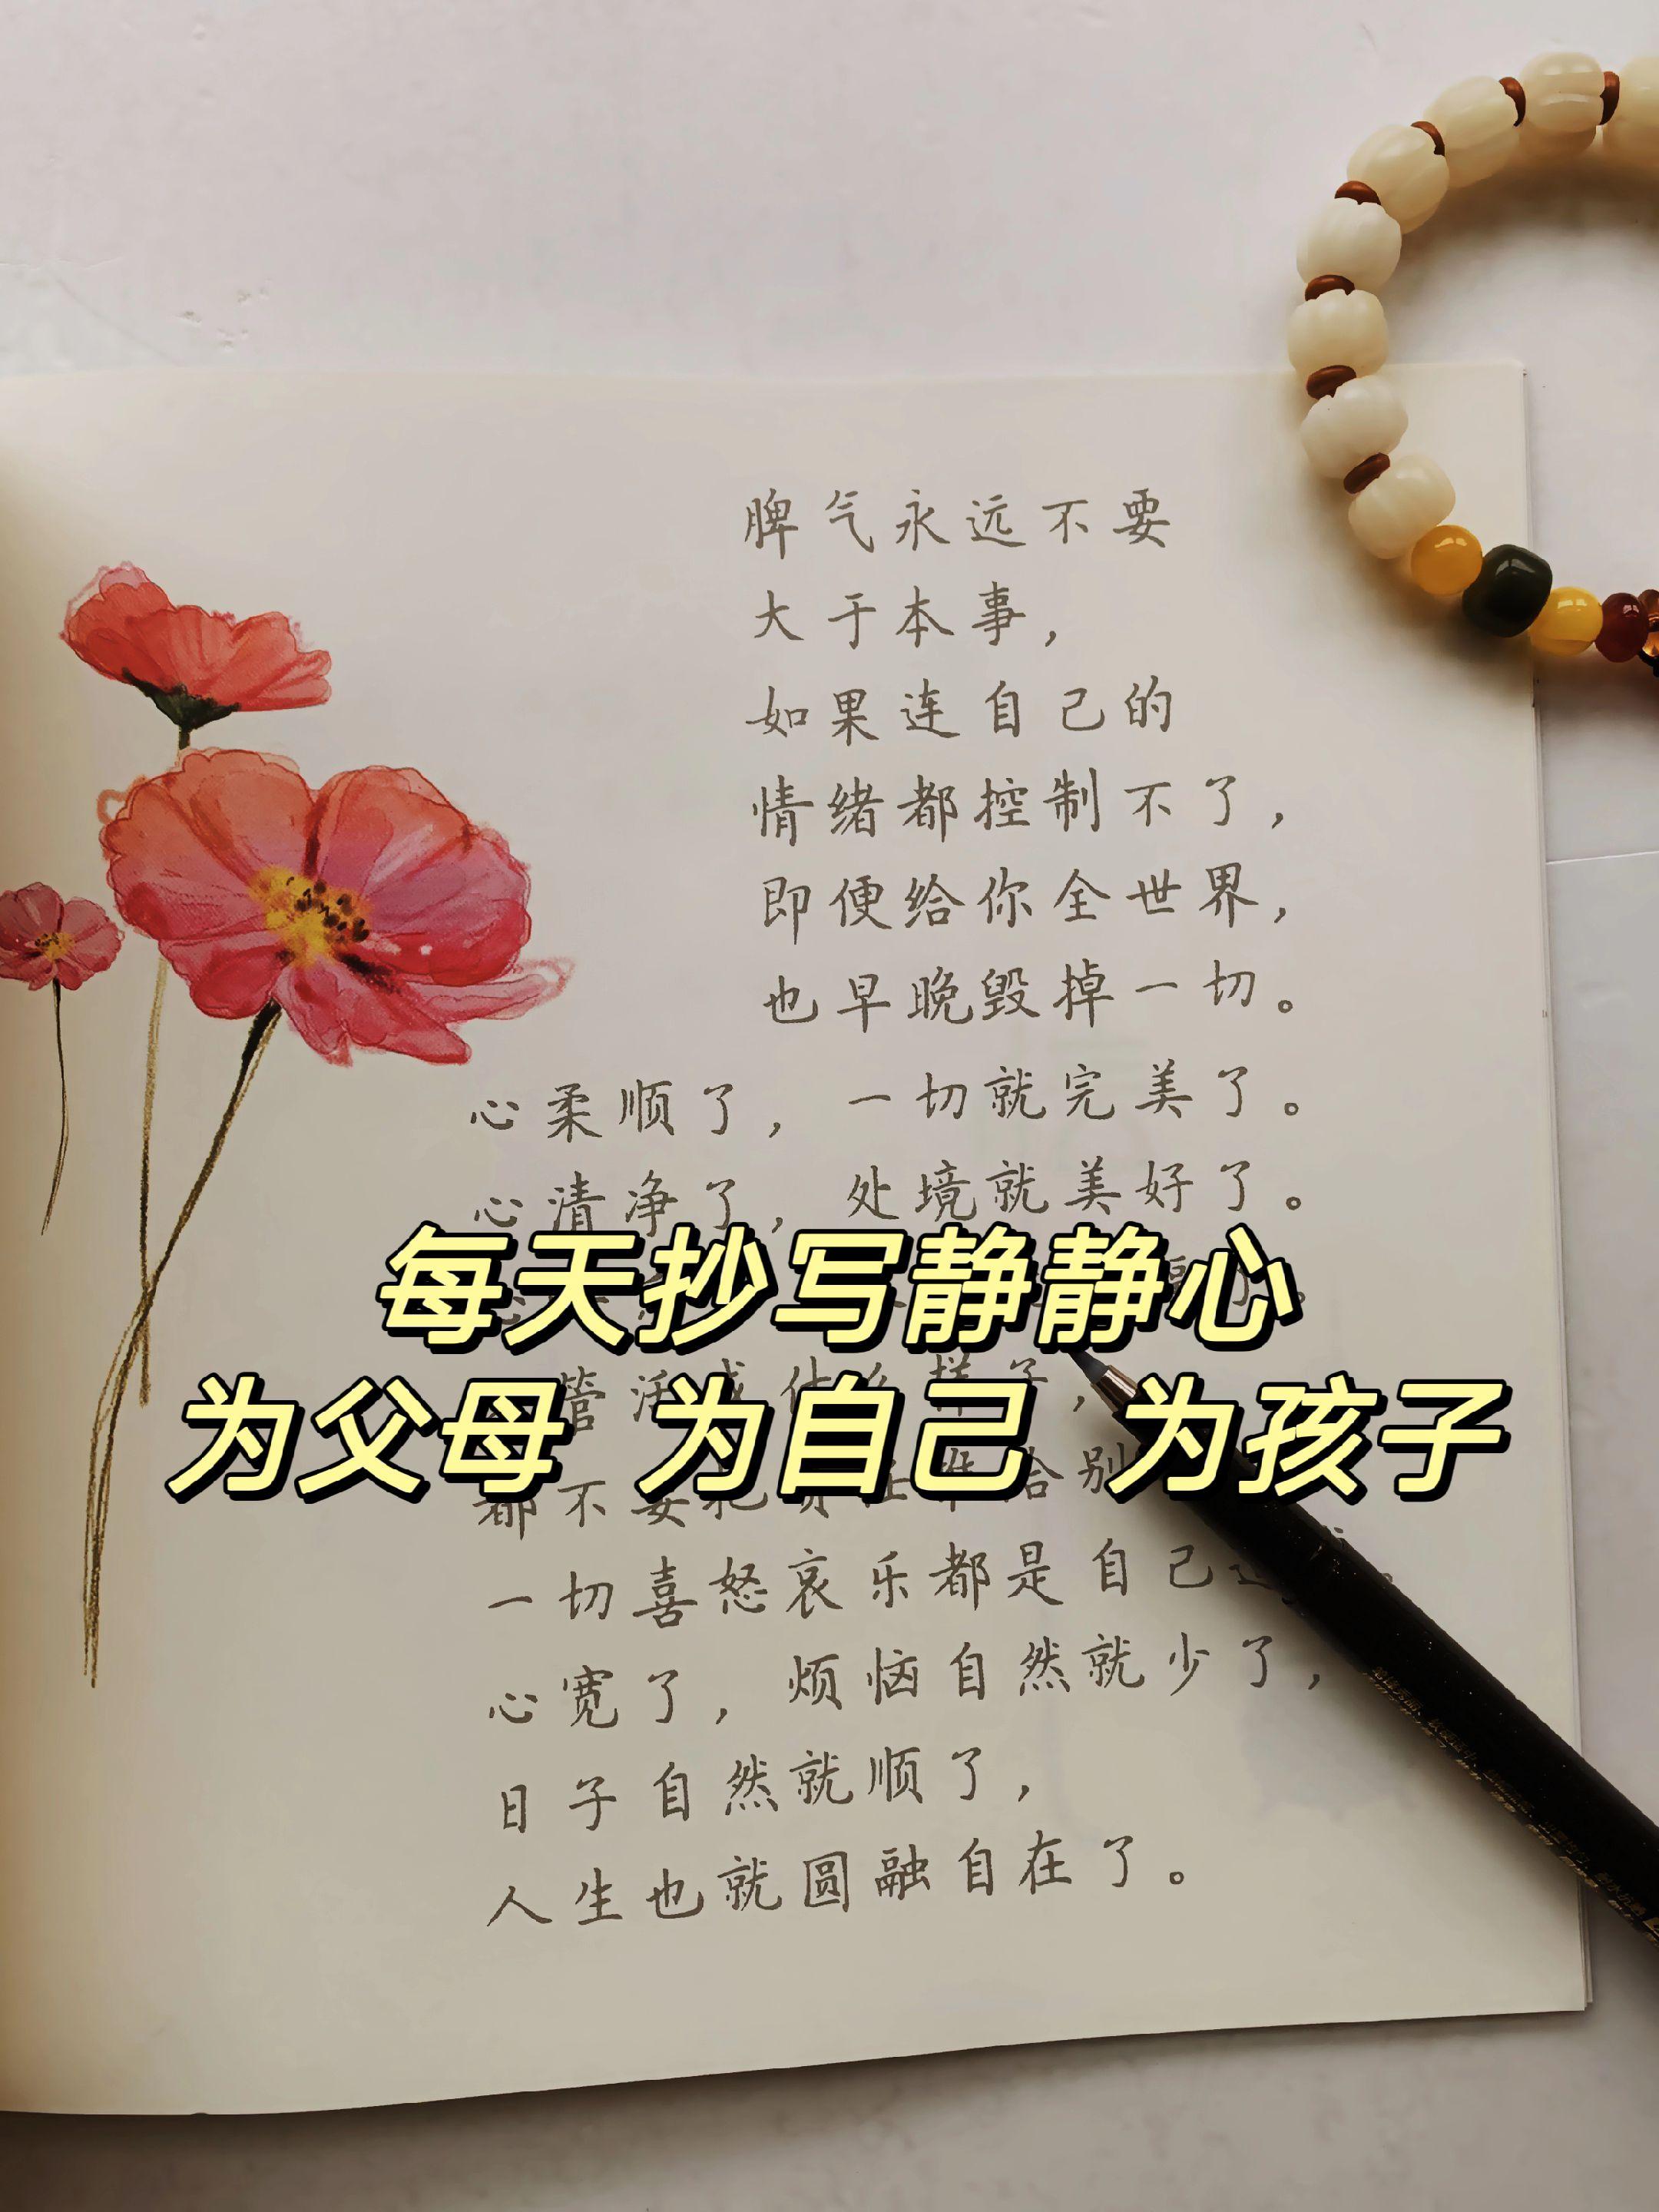 脾气永远不要
大于本事，
如果连自己的
情绪都控制不了，
即便给你全世界，
也早晚毁掉一切。
心柔顺了，一切就完美了。
心清净了，处境就美好了。
每天抄写静静心
为父母 为自己 为孩子
管活 什 样子，
都不要 给别
一切喜怒哀乐都是自己
心宽了，烦恼自然就少了，
日子自然就顺了，
人生也就圆融自在了。